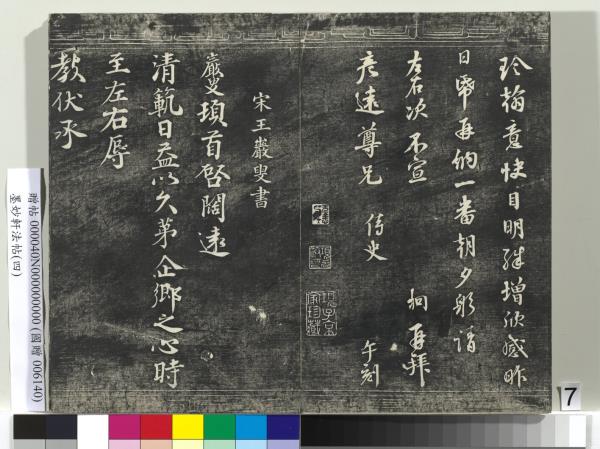 玲翰意快自明殊增欣感昨
日帋再納一番朝夕躬詣
左右次不宣
拘再拜
彥遠尊兄 侍史
午刻
宋王巖叟書
巖叟頊首啓闊遠
清範日益以久第企鄉之心時
至左右辱
教伏承
贈帖 000040N000000000 (國贈 006140)
墨妙軒法帖(四)
7